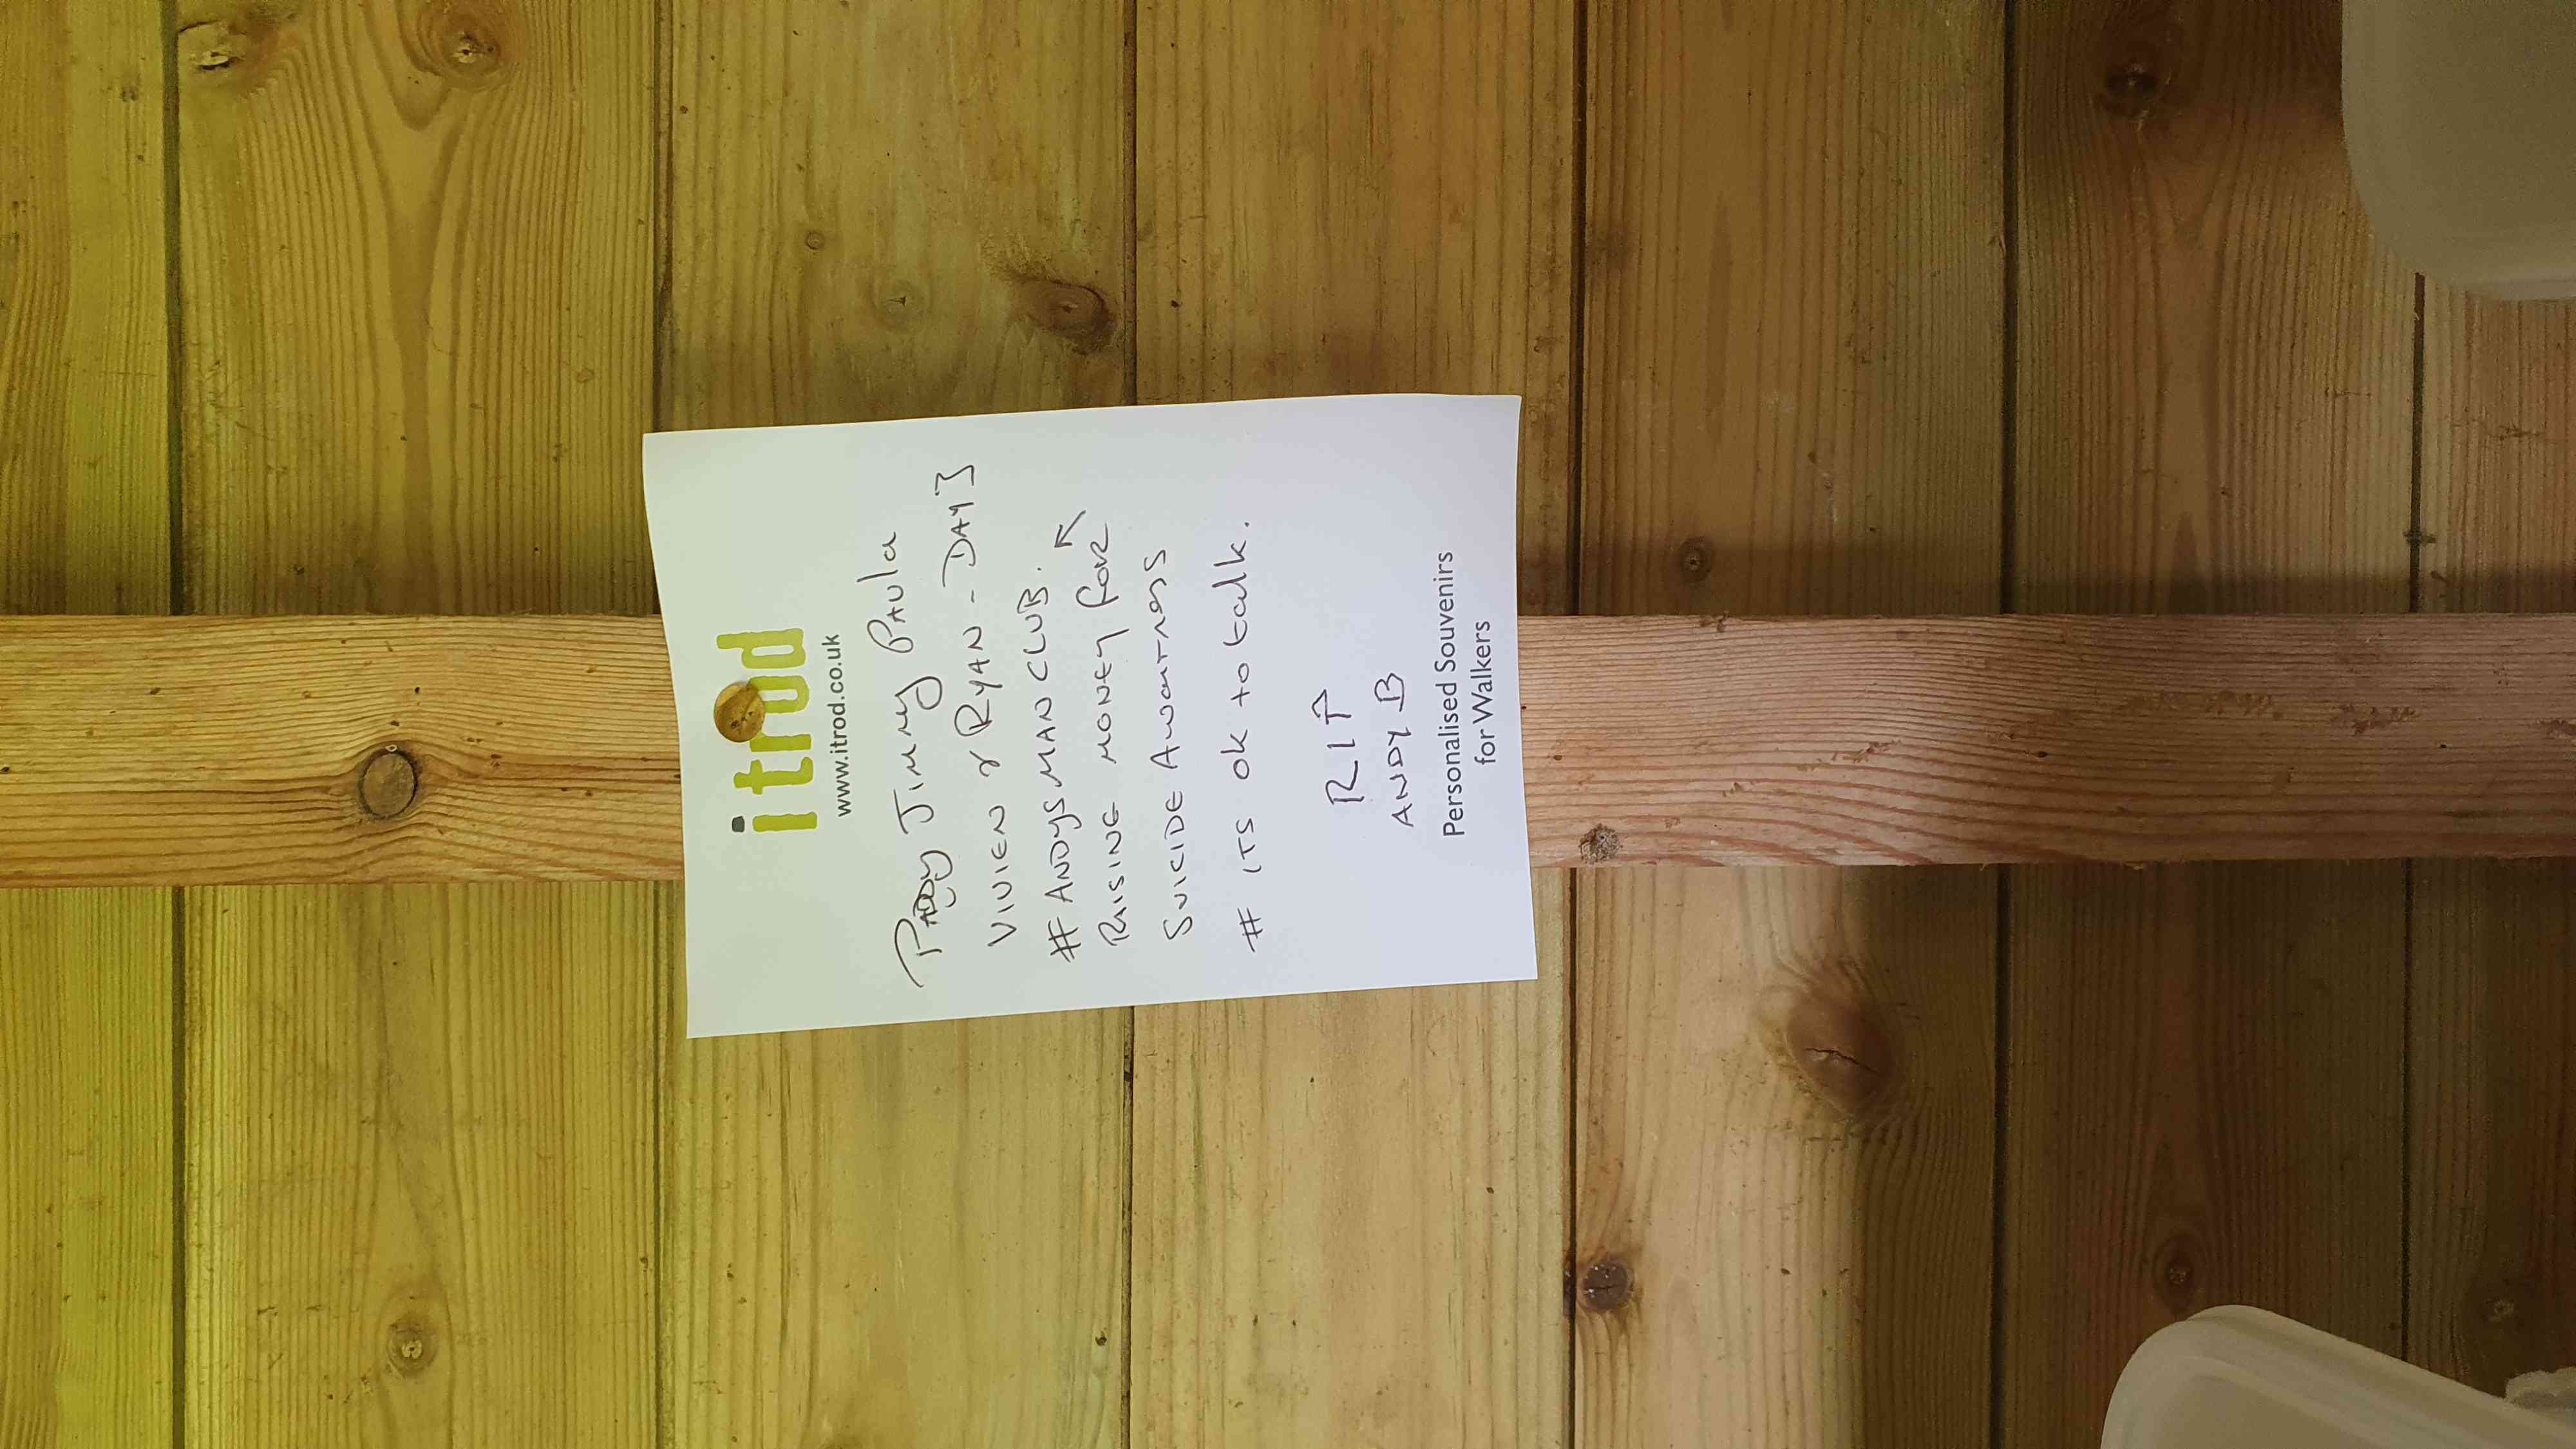 itrod
www.itrod.co.uk
PADDY JIMMY PAULA
VIVIEN & RYAN - DAY 3
# ANDYSMANCLUB. ↖
RAISING MONEY FOR
SUICIDE AWARENESS
# ITS OK to talk.
RIP
ANDY B
Personalised Souvenirs
for Walkers